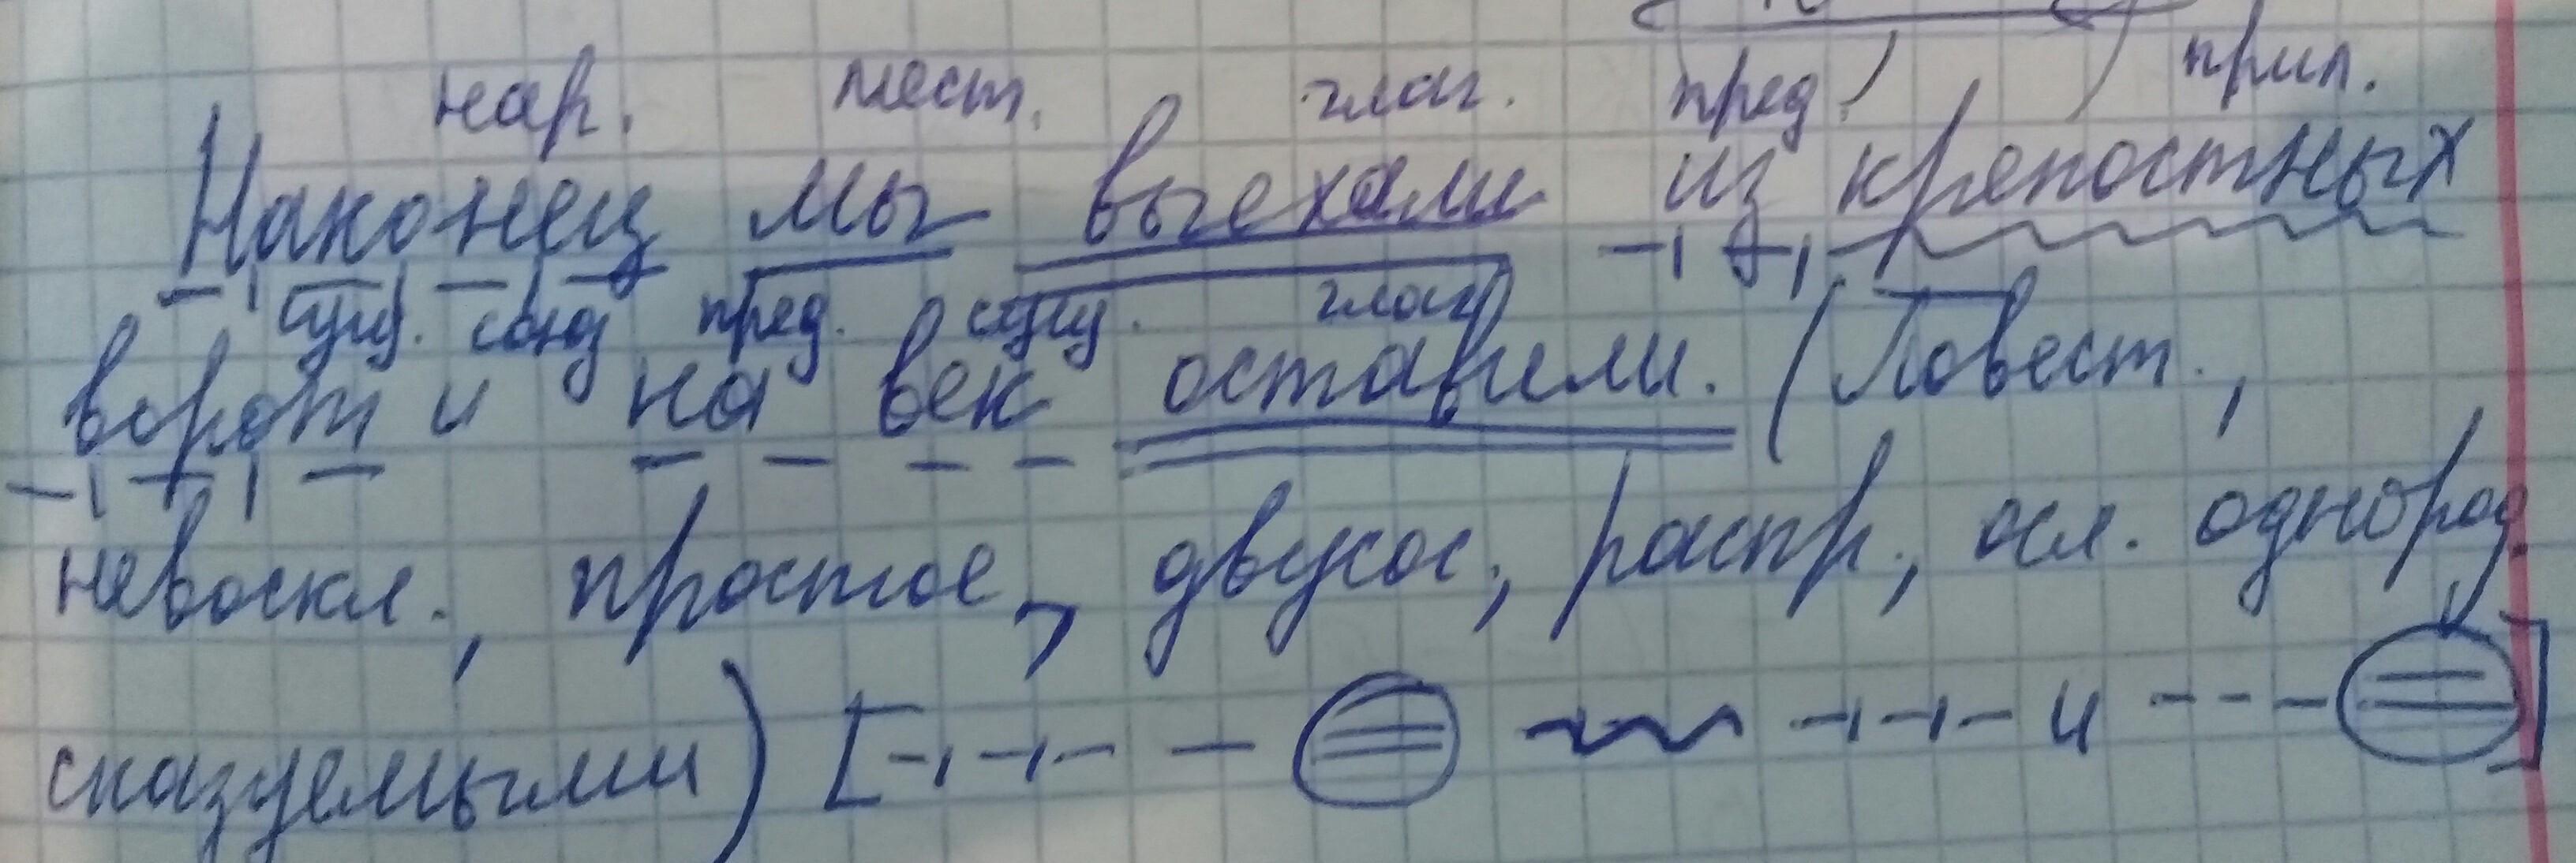 нар. мест. глаг. пред. прил.
Наконец мы выехали из крепостных
сущ. союз пред. сущ. глаг
ворот и на век оставили. (Повест.,
невоскл., простое, двусос., распр., осл. однород.
сказуемыми) [ и ]